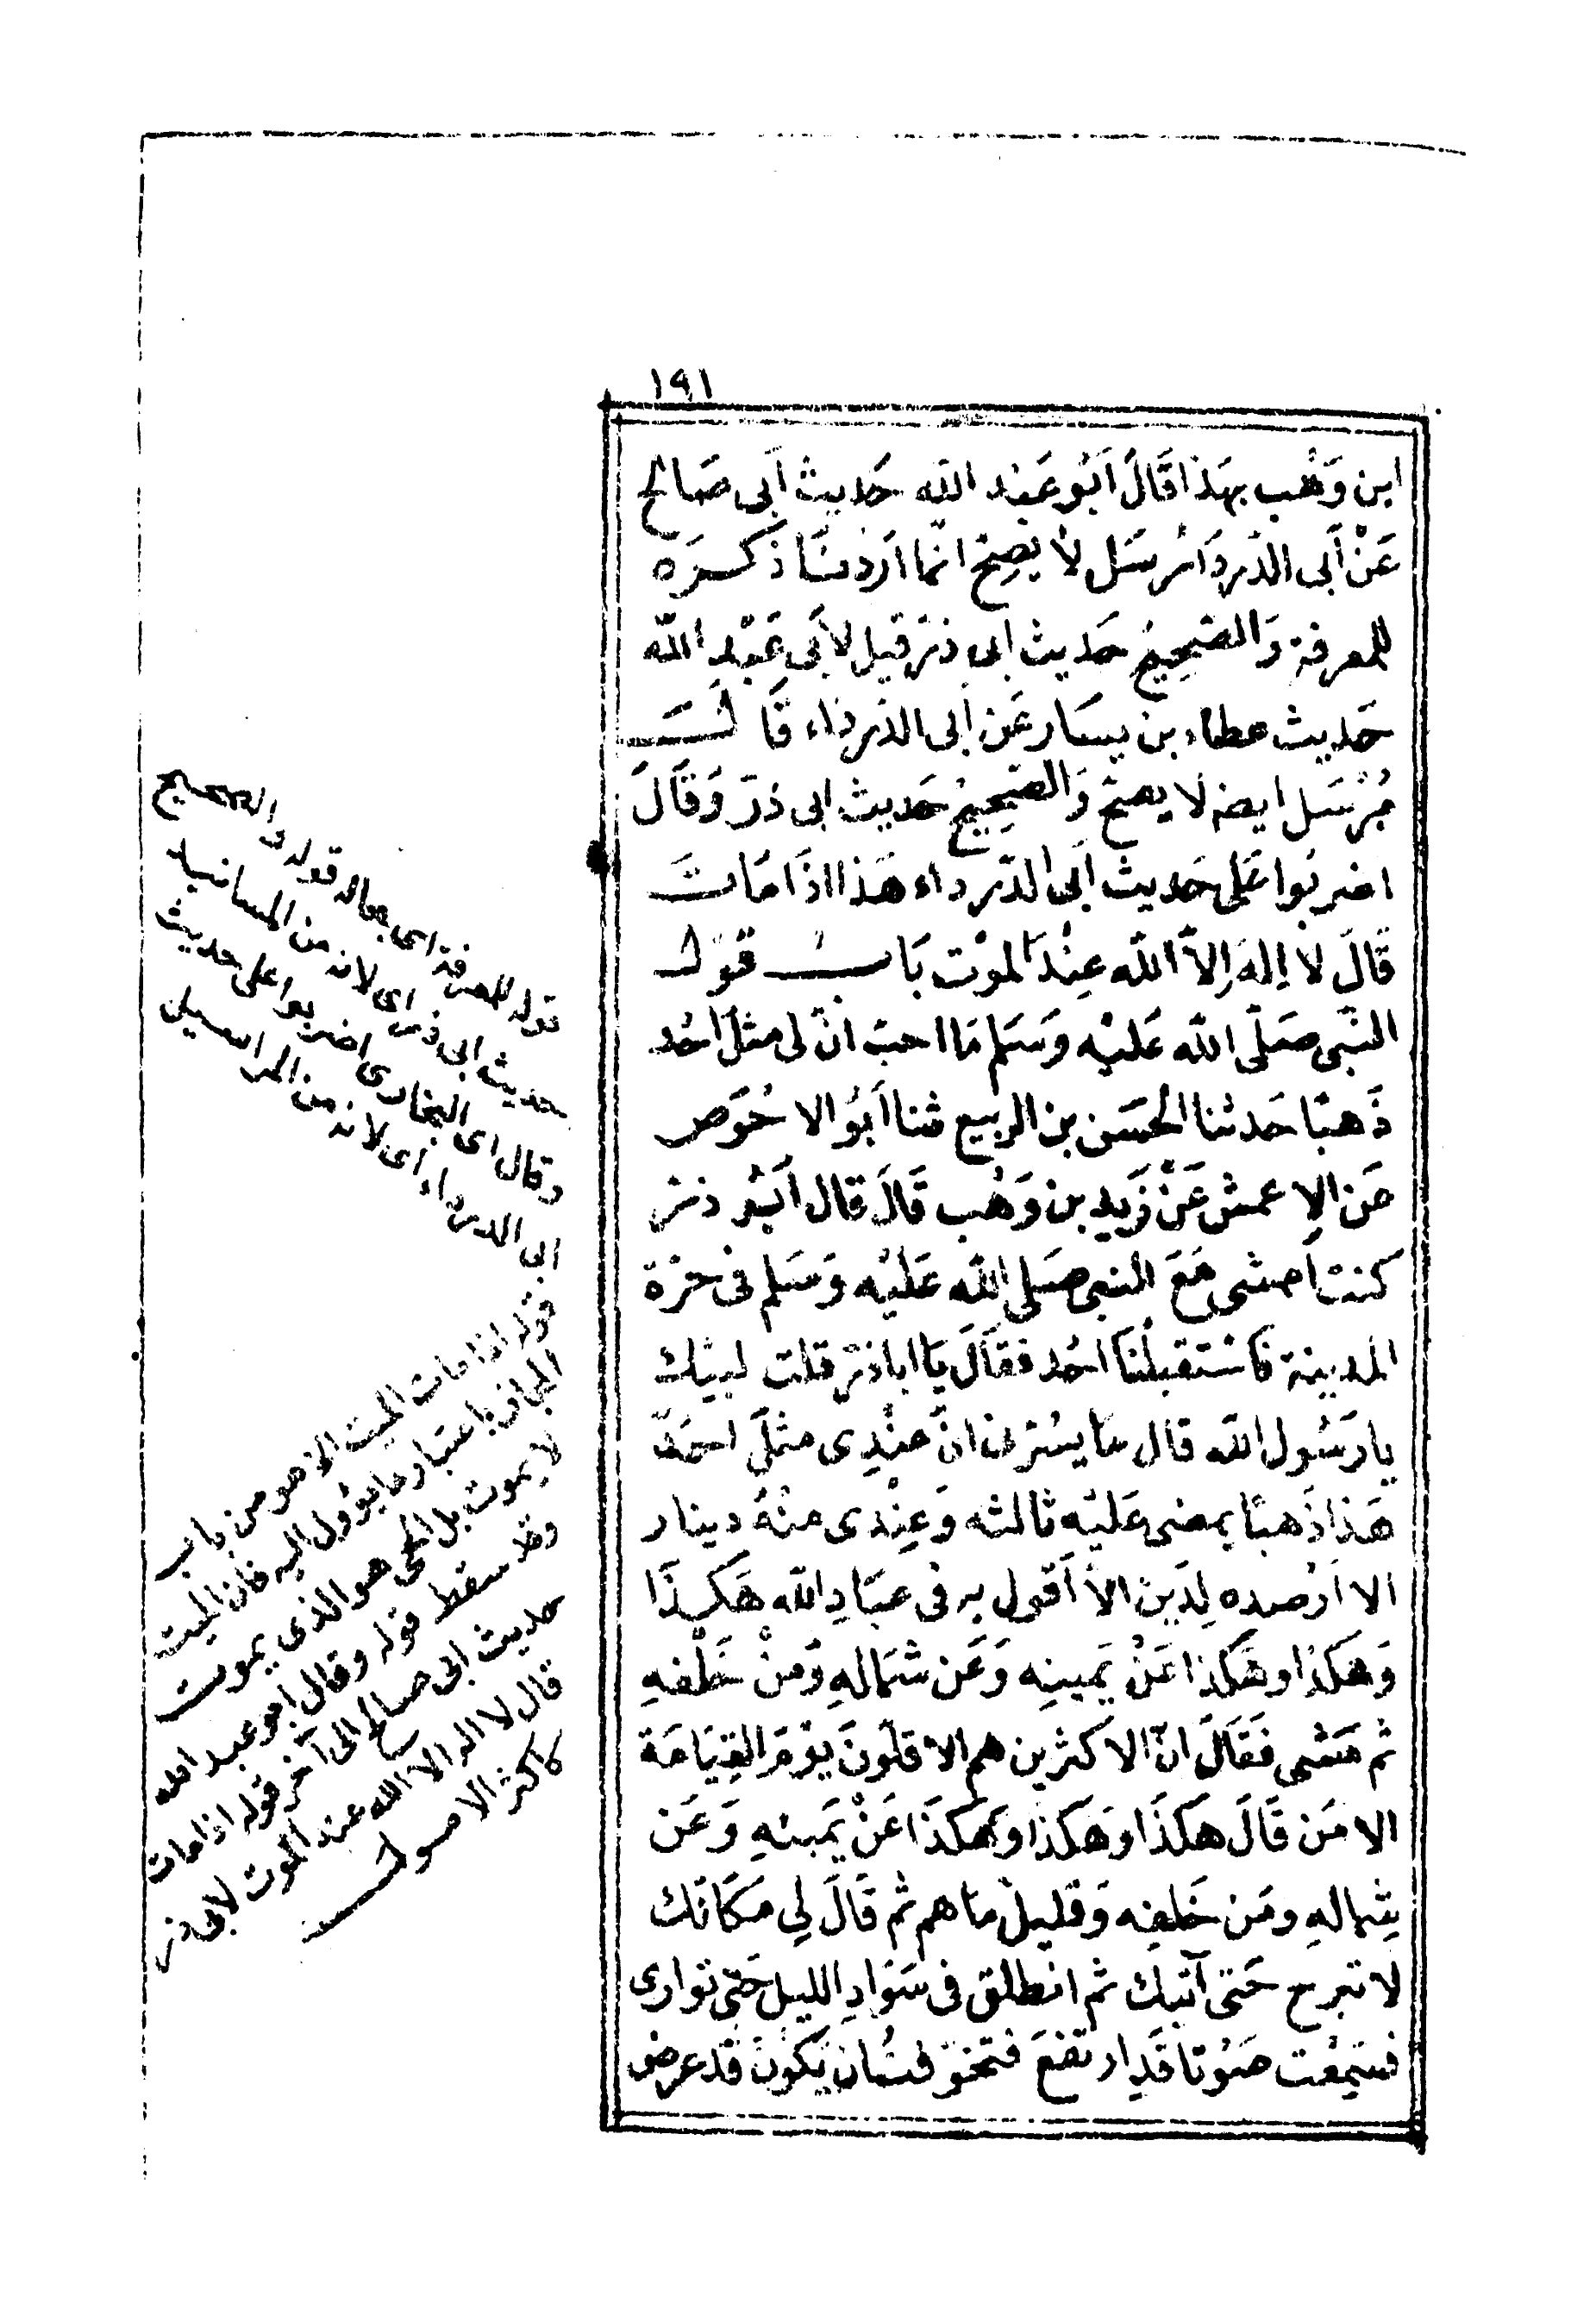 ١٩١
ابن وَهْب بهَذا قَالَ اَبُو عَبْد الله حَديث اَبى صَالح
عَنْ أَبى الدّردَاء مُرسَل لاَ يَصِحّ انّما اَرَدْنَا ذَكَرَه
للمعرفة وَالصّحِيحُ حَديث ابى ذرّ قيل لاَبى عَبْدِ الله
حَديث عطاء بن يسَار عَن اَبى الدّرداء قَالَ
مُرْسَل ايضا لَا يصحّ وَالصّحِيحُ حَديث ابى ذرّ وَقَالَ
اضربُوا عَلى حَديث اَبى الدّرداء هَذا اذَا مَاتَ
قَالَ لا اِلهَ اِلاّ الله عِنْدَ الموْت بَابُ قَوْل
النّبى صَلّى الله عَليْه وَسَلم مَا احبّ انّ لى مثلَ اُحُد
ذَهبًا حَدثنا الحسَن بن الربيع ثنا اَبُو الاحْوَص
عَن الاعمش عَنْ زَيد بن وَهْب قَالَ قال اَبُو ذرّ
كنت اَمشى مَعَ النبى صَلى الله عَليْه وَسَلم فى حَرّة
المدينة فَاسْتَقبلْنَا اُحُد فقَالَ يَا ابا ذرّ قلت لبيْك
يا رَسُول الله قال مَا يسُرّنى انّ عنْدِى مثلَ احُد
هَذا ذَهبًا يمضى عَليْه ثالثه وَعنْدى منْهُ دينار
الا اَرْصده لِدَين الاّ اَقول به فى عبَادِ الله هَكذَا
وَهكَذا وهَكذا عَنْ يَمينِه وَعَن شمَالهِ وَمنْ خَلْفهِ
ثم مَشى فَقَالَ انّ الاكثرين هم الاقلّونَ يَوْمَ القِيَامَة
الا مَن قَالَ هكَذَا وَهَكذا وهَكذَا عَنْ يَمينهِ وَعَن
شِمالهِ ومَن خَلفِه وَقليلْ مَا هم ثم قَالَ لِى مَكَانَك
لا تبرح حَتى آتيك ثم انطلق فى سَوَادِ الليل حَتى توارى
فسَمِعْت صَوْتا قَدِ ارتفعَ فتخوّفت اَن يَكونَ قَدْ عرض
قوله للمعرفة اى بحاله قوله والصحيح
حديث ابى ذر اى لانه من المسانيد
وقال اى البخارى اضربوا على حديث
ابى الدرداء أى لانه من المراسيل
قوله اذا مات الميت الا هو من باب
المجاز باعتبار ما يؤول اليه فان الميت
لا يموت بل الحى هو الذى يموت
وقد سقط قوله وقال أبو عبد الله
حديث ابى صالح الى آخر قوله اذا مات
قال لا اله الا الله عند الموت لابى ذر
كاكثر الاصول